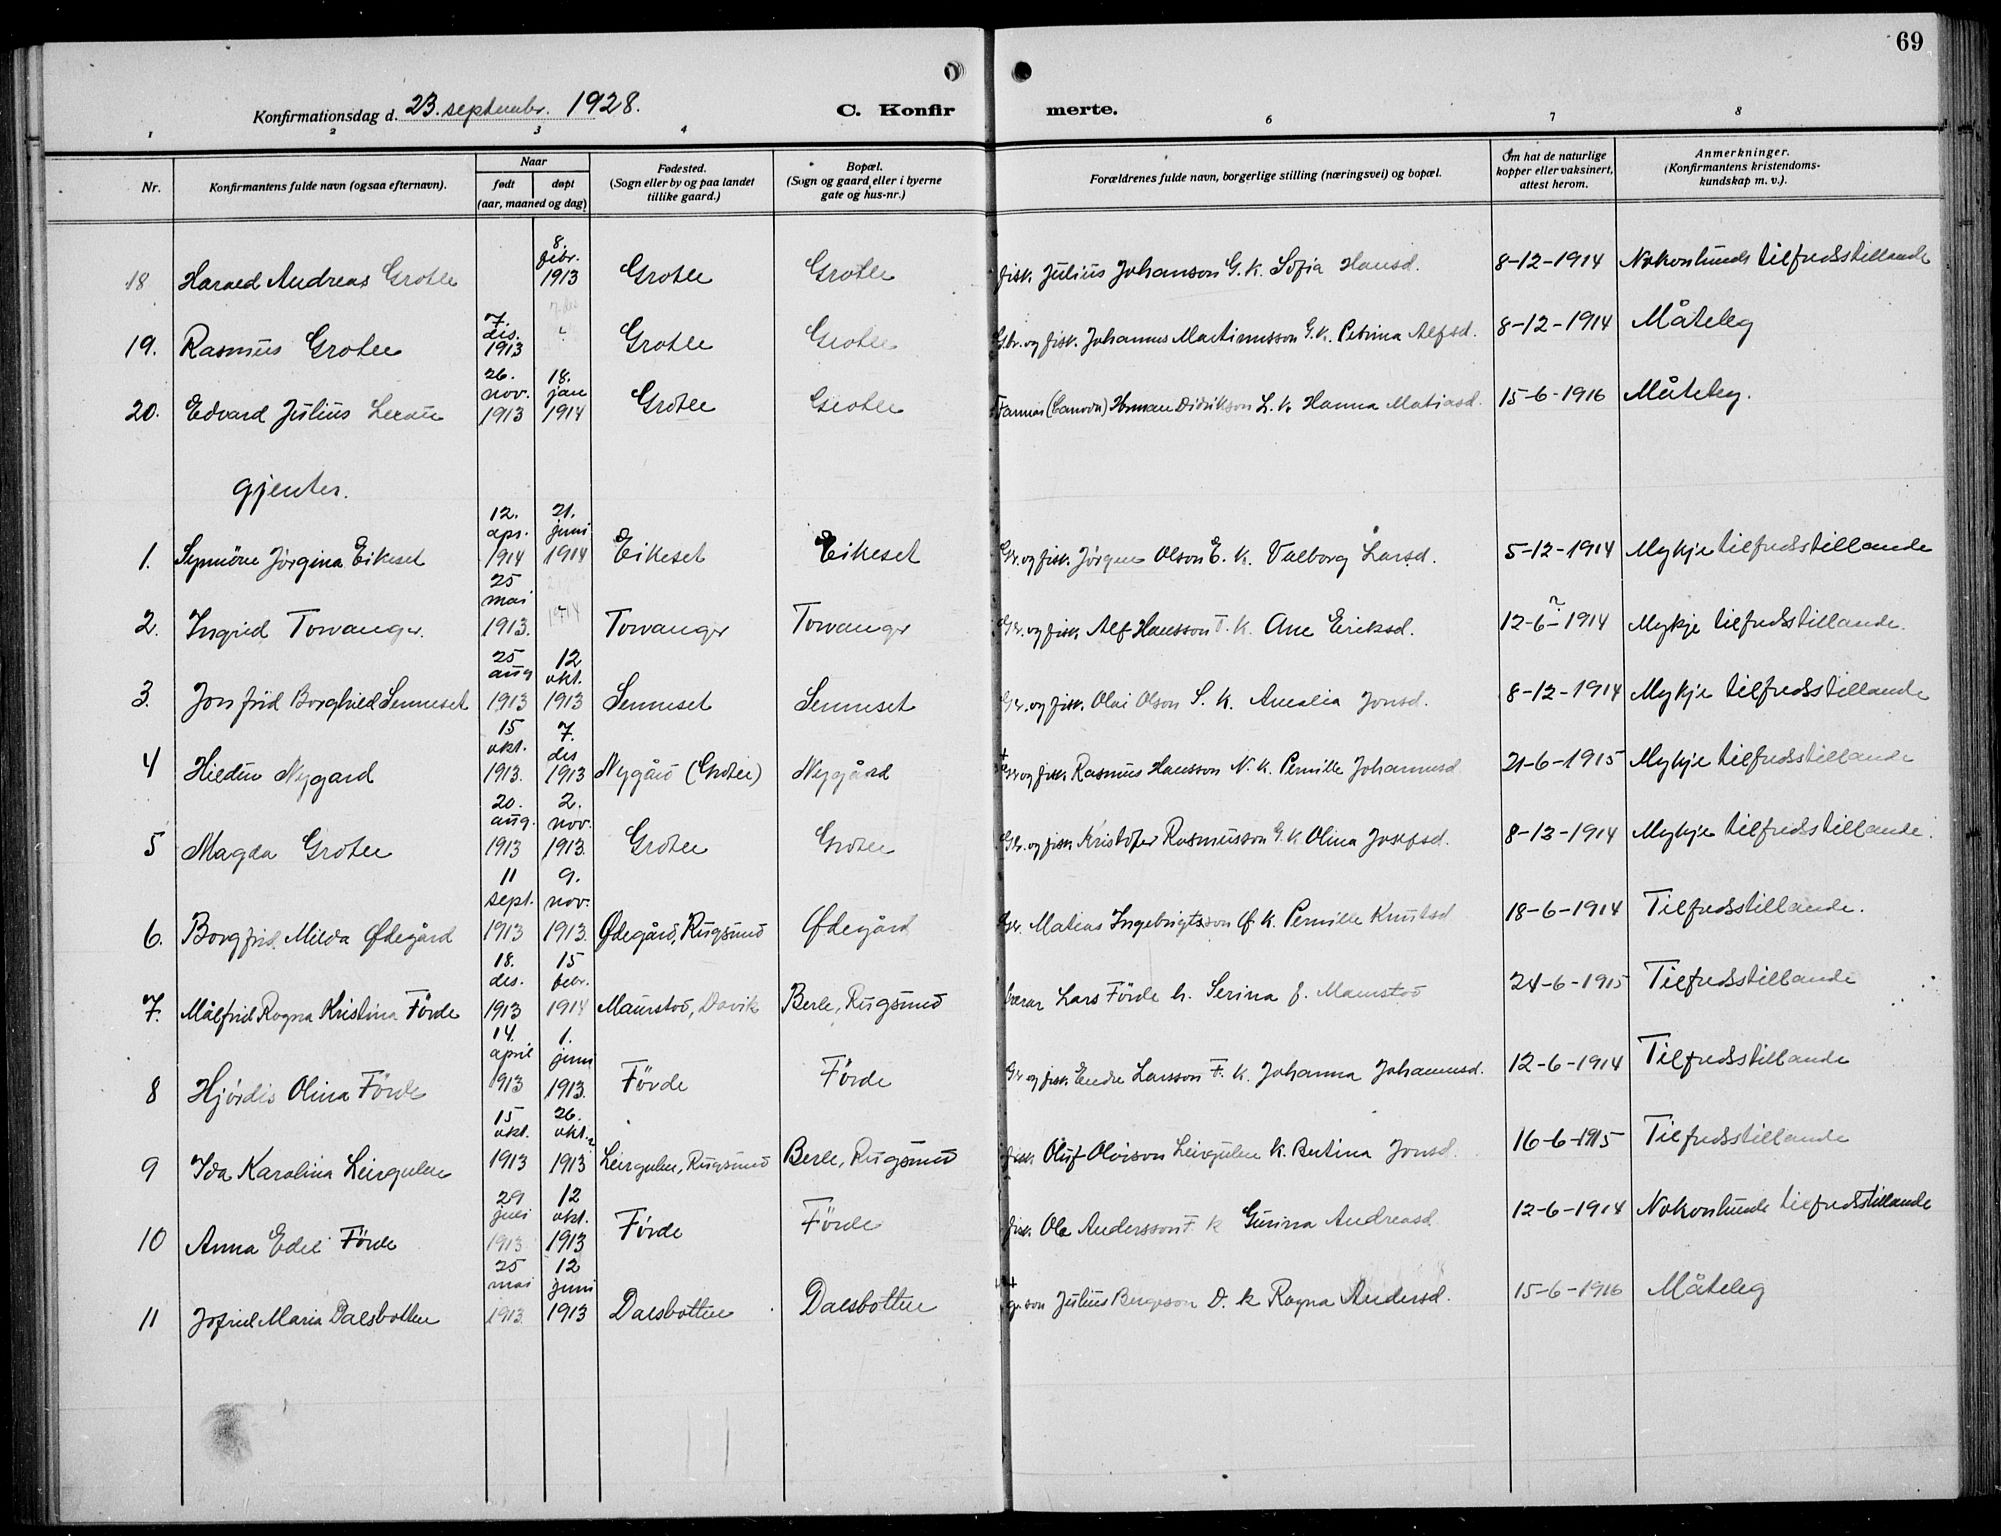 69
Konfirmationsdag d. 23. septembr. 1928.
C. Konfirmerte.
1 2 3 4 6 7 8
Nr.
Konfirmantens fulde navn (ogsaa efternavn).
Naar
født døpt
(aar, maaned og dag)
Fødested.
(Sogn eller by og paa landet
tillike gaard.)
Bopæl.
(Sogn og gaard eller i byerne
gate og hus-nr.)
Forældrenes fulde navn, borgerlige stilling (næringsvei) og bopæl.
Om hat de naturlige
kopper eller vaksinert,
attest herom.
Anmerkninger.
(Konfirmantens kristendoms-
kundskap m. v.).
18 Harald Andreas Grotle 8. febr. 1913 Grotle Grotle fisk. Julius Johanson G. k. Sofia Hansd. 8-12-1914 Nokonlunde tilfredsstillande
19. Rasmus Grotle 7. des. 1913 Grotle Grotle Gbr. og fisk. Johannes Martinusson G. k. Petrina Alfsd. 8-12-1914 Måteleg
20. Edvard Julius 26. nov. 1913 18. jan 1914 Grotle Grotle Herman Didrikson L. k. Hanna Matiasd. 15-6-1916 Måteleg.
gjenter.
1. Synnöve Jørgina Eikeset 12. apr. 1914 21. juni 1914 Eikeset Eikeset Gbr. og fisk. Jørgen Olson E. k. Valborg Larsd. 5-12-1914 Mykje tilfredsstillande
2. Ingrid Torvanger. 25 mai 1913. 1914 Torvanger Torvanger Gbr. og fisk. Alf Hansson T. k. Ane Eriksd. 12-6-1914 Mykje tilfredsstillande.
3. Jonfrid Borghild Senneset 25 aug 1913 12 okt. 1913 Senneset Senneset Gbr. og fisk. Olai Olson S. k. Amalia Jonsd. 8-12-1914 Mykje tilfredsstillande
4 Hildur Nygard 15 okt. 1913. 7. des 1913 Nygård (Grotle) Nygård + Gbr. og fisk. Rasmus Hansson N. k. Pernille Johannesd. 21-6-1915 Mykje tilfredsstillande
5 Magda Grotle 20. aug. 1913 2. nov. 1913. Grotle Grotle Gbr. og fisk. Kristofer Rasmusson G. k. Olina Josefsd. 8-12-1914 Mykje tilfredsstillande.
6. Borgfrid Milda Ødegård 11 sept. 1913 9. nov. 1913. Ødegård, Rugsund Ødegård Gbr. Matias Ingebrigtsson Ø k. Pernille Knutsd 18-6-1914 Tilfredsstillande.
7. Målfrid Ragna Kristina Förde 18. des. 1913 15 febr. 1914 Maurstad, Davik Berle, Rugsund lærar Lars Förde h. Serina f. Maurstad 24-6-1915 Tilfredsstillande
8 Hjördis Olina Förde 14. april 1913 1. juni 1913. Förde Förde Gbr og fisk. Endre Larsson F. k. Johanna Johannesd. 12-6-1914 Tilfredsstillande
9 Ida Karolina Leirgulen 15 okt. 1913 26. okt. 1913 Leirgulen, Rugsund Berle, Rugsund fisk. Oluf Olaison Leirgulen k. Bertina Jonsd. 16-6-1915 Tilfredsstillande
10 Anna Edel Förde 29 juli 1913 12 okt. 1913 Förde Förde fisk. Ole Andersson F. k Gurina Andreasd. 12-6-1914 Nokonlunde tilfredsstillande
11 Jofrid Maria Dalsbotten 25 mai 1913. 12 juni 1913 Dalsbotten Dalsbotten Julius D. k Ragna Andersd. 15-6-1916 Måteleg